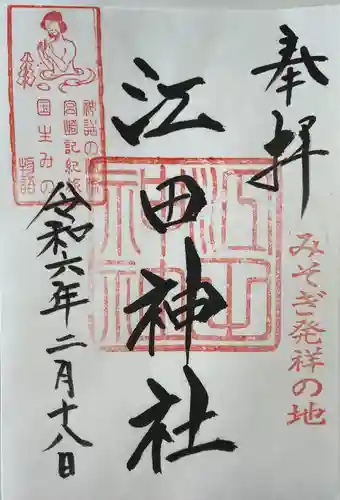 奉拝
みそぎ発祥の地
江田神社
江田神社
神話の
宮崎記紀
国生みの
物語
令和六年二月十八日